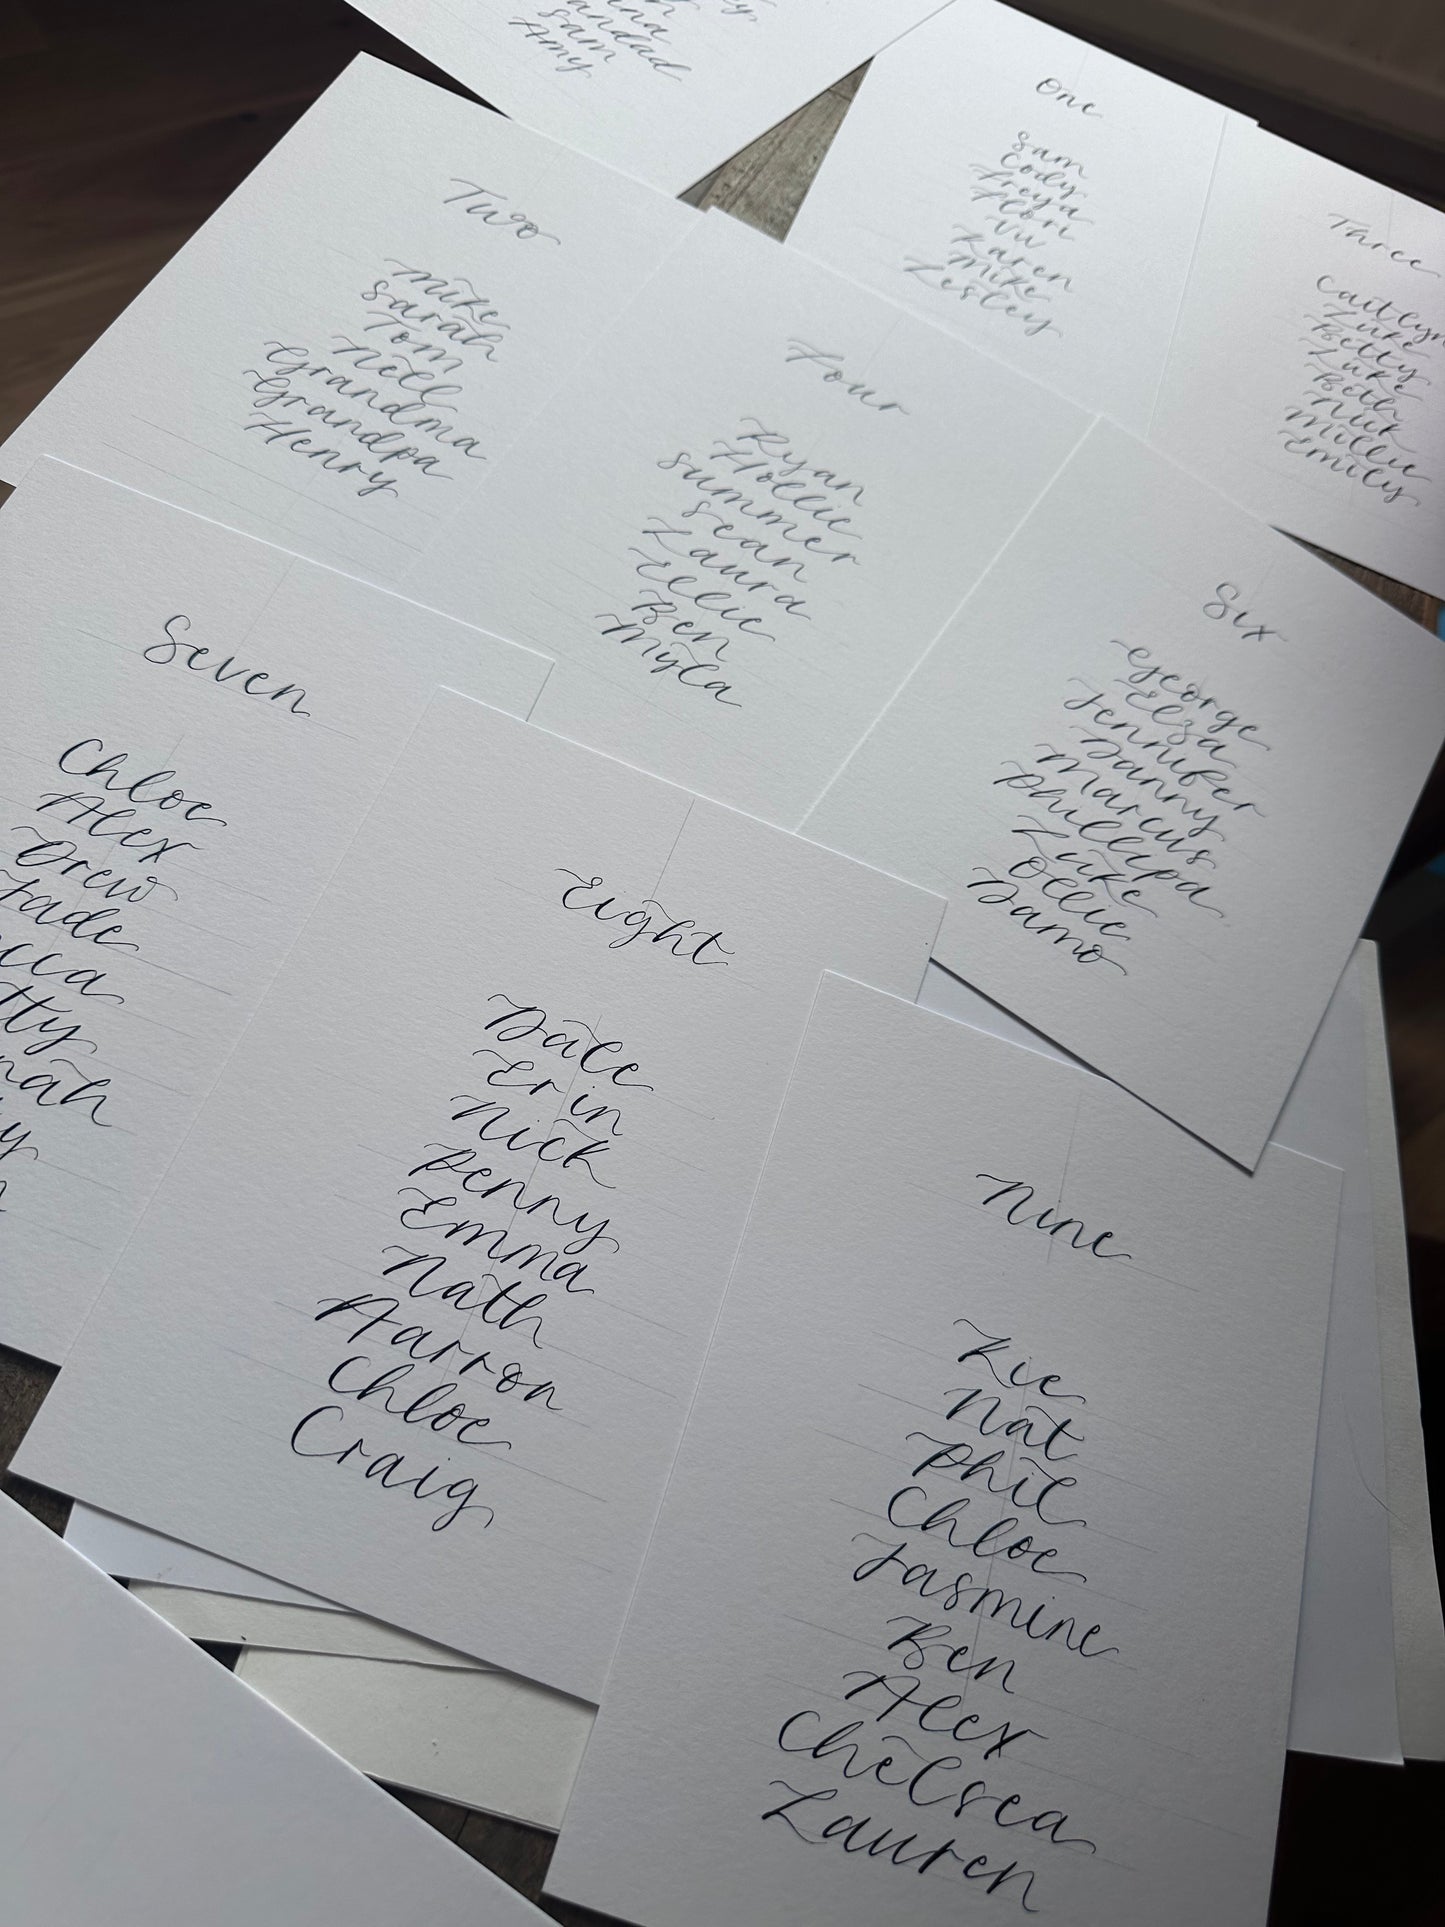 Sam
Amy
One
Sam
Cody
Freya
Flori
Viv
Karen
Mike
Lesley
Two
Mike
Sarah
Tom
Nell
Grandma
Grandpa
Henry
Three
Caitlyn
Luke
Betty
Luke
Beth
Millie
Emily
Four
Ryan
Hollie
Summer
Sean
Laura
Ellie
Ben
Myla
Six
George
Elza
Jennifer
Danny
Marcus
Phillipa
Luke
Ollie
Damo
Seven
Chloe
Alex
Drew
Jade
Eight
Dale
Erin
Nick
Penny
Emma
Nath
Aarron
Chloe
Craig
Nine
Kie
Nat
Phil
Chloe
Jasmine
Ben
Alex
Chelsea
Lauren